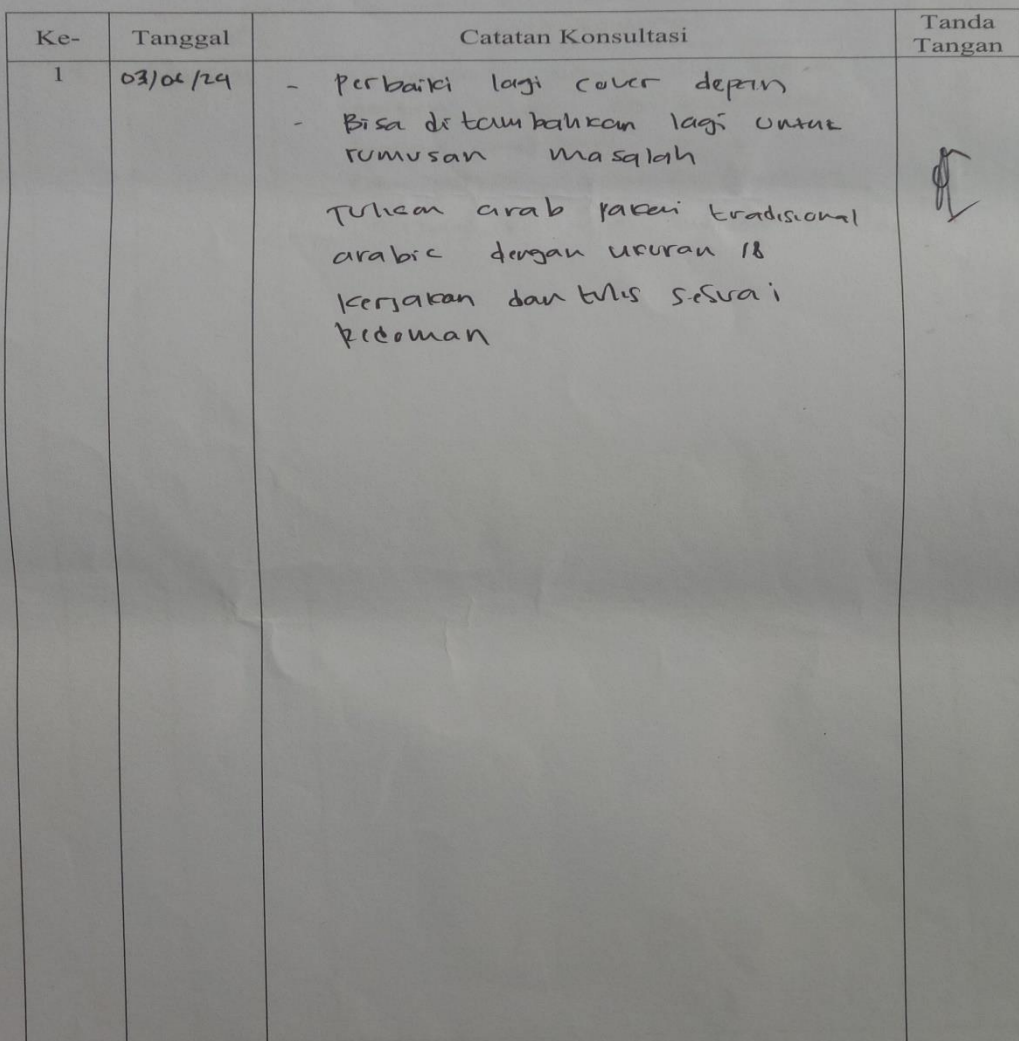 Ke- Tanggal Catatan Konsultasi Tanda Tangan
1 03/06/24 - Perbaiki lagi cover depan
- Bisa ditambahkan lagi untuk
rumusan masalah
Tulisan arab pakai tradisional
arabic dengan ukuran 18
kerjakan dan tulis sesuai
pedoman